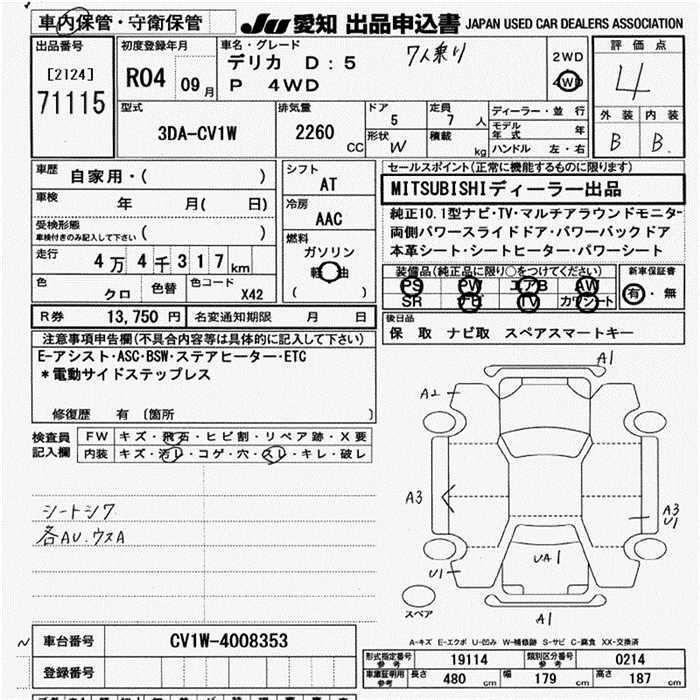 車内保管・守衛保管
JU 愛知 出品申込書 JAPAN USED CAR DEALERS ASSOCIATION
出品番号
[2124]
71115
初度登録年月
R04 09月
車名・グレード
デリカ D:5 7人乗り
P 4WD
2WD
4WD
評価点
4
外装 内装
B B.
型式
3DA-CV1W
排気量
2260 CC
ドア
5
定員
7 人
形状
W
積載
kg
ディーラー・並行
モデル年式 年
ハンドル 左・右
車歴
自家用・( )
車検
年 月( 日)
受検形態
車検付きのみ記入して下さい ( )
走行
4万4千317km
色
クロ
色替
色コード
X42
シフト
AT
冷房
AAC
燃料
ガソリン
軽油
( )
セールスポイント(正常に機能するものに限ります)
MITSUBISHIディーラー出品
純正10.1型ナビ・TV・マルチアラウンドモニター
両側パワースライドドア・パワーバックドア
本革シート・シートヒーター・パワーシート
装備品(純正品に限り○をつけてください)
PS PW エアB AW
SR ナビ TV カワシート
新車保証書
有・無
R券 13,750 円
名変通知期限 月 日
後日品
保 取 ナビ取 スペアスマートキー
注意事項申告欄(不具合内容等は具体的に記入して下さい)
E-アシスト・ASC・BSW・ステアヒーター・ETC
*電動サイドステップレス
修復歴 有 〔箇所 〕
検査員記入欄
FW キズ・飛石・ヒビ割・リペア跡・X要
内装 キズ・汚レ・コゲ・穴・スレ・キレ・破レ
シートシワ
各AU.ウスA
A1
A2
A3
A3
U1
UA1
U1
A1
スペア
A-キズ E-エクボ U-凹み W-補修跡 S-サビ C-腐食 XX-交換済
車台番号 CV1W-4008353
登録番号
形式指定番号
参考
19114
類別区分番号
参考
0214
車庫証明用
参考
長さ 480 cm
幅 179 cm
高さ 187 cm